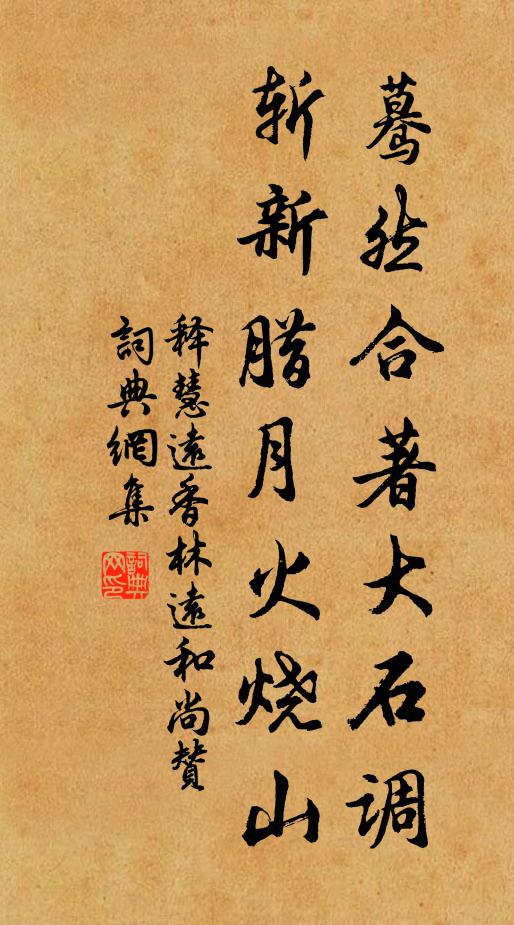 蓦然合著大石调
斩新腊月火烧山
释慧遠香林遠和尚賛
詞典網集
詞典网印